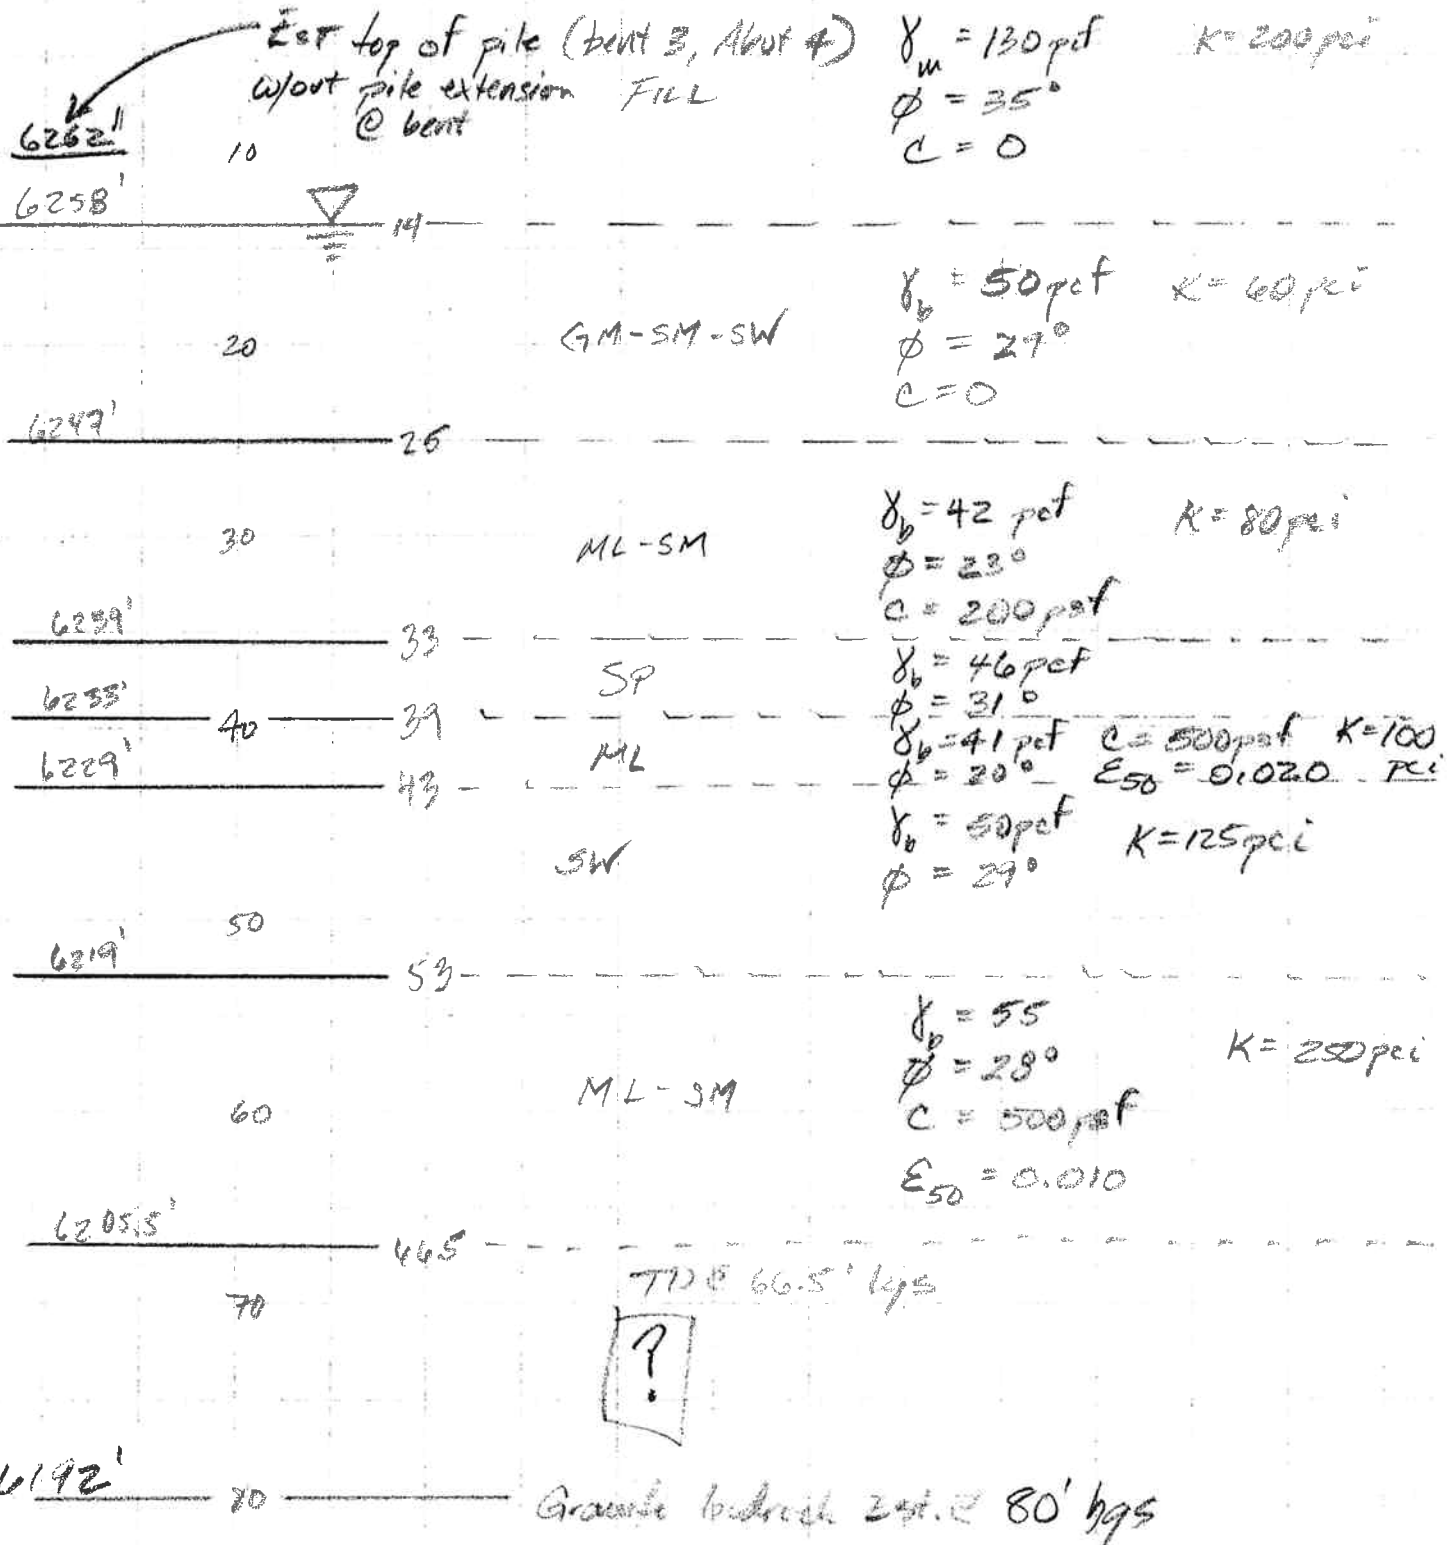 Est top of pile (bent 3, Abut 4) γm = 130 pcf K = 200 pci
w/out pile extension FILL φ = 35°
@ bent
6262" 10 C = 0
6258' 14
γb = 50 pcf K = 60 pci
20 GM-SM-SW φ = 29°
C = 0
6247' 25
γb = 42 pcf K = 80 pci
30 ML-SM φ = 23°
C = 200 psf
6239' 33
SP γb = 46 pcf
φ = 31°
6233' 40 39
ML γb = 41 pcf C = 500 psf K = 100 pci
φ = 20° ε50 = 0.020
6229' 43
γb = 50 pcf K = 125 pci
SW φ = 29°
50
6219' 53
γb = 55 K = 250 pci
φ = 28°
60 ML-SM C = 500 psf
ε50 = 0.010
6205.5' 665
TD @ 66.5' bgs
70
?
6192' 80 Granite bedrock est. @ 80' bgs